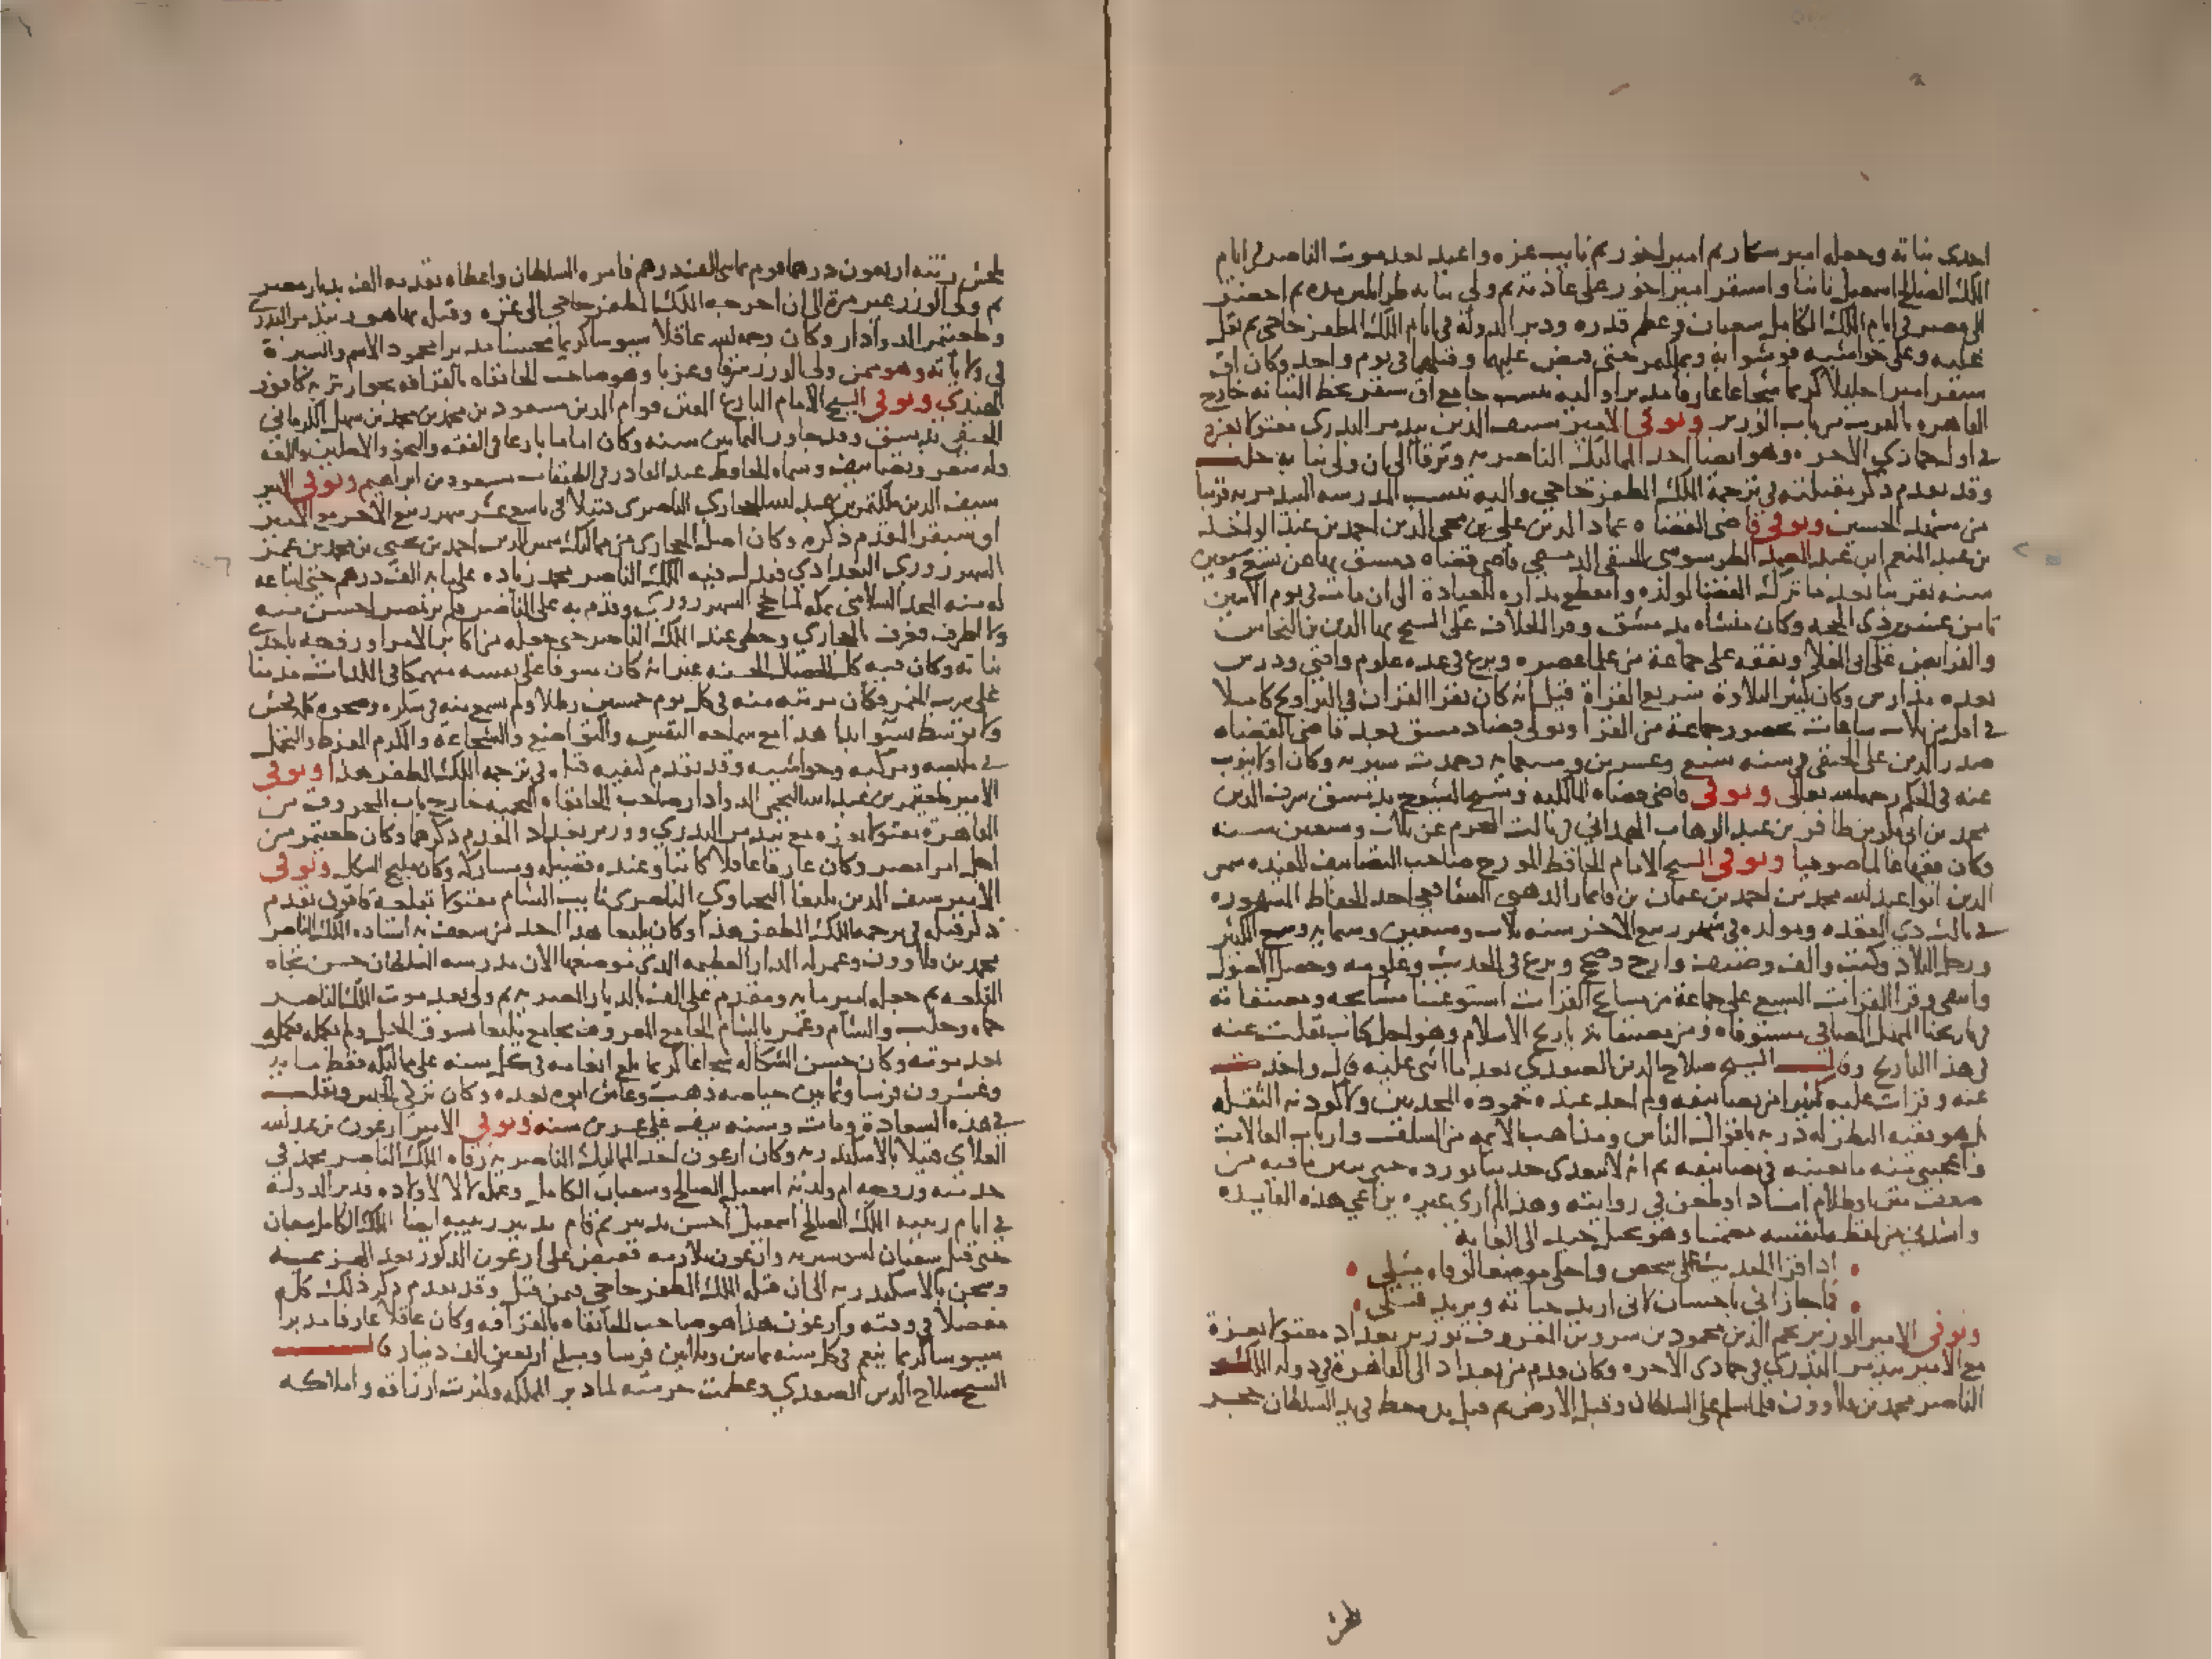 احدى بناته وجعله امير شكار ثم امير اخور ثم نايب غزه واعيد بعد موت الناصر في ايام
الملك الصالح اسمعيل ثانيا واستقر امير اخور على عادته ثم ولي نيابه طرابلس مده ثم احضر
الى مصر في ايام الملك الكامل شعبان وعظم قدره ودبر الدولة في ايام الملك المظفر حاجي ثم ثقل
عليه وعلى حواشيه فوشوا به وبملكتمر حتى قبض عليهما وقتلهما في يوم واحد وكان اق
سنقر اميرا جليلا كريما شجاعا عارفا مدبرا واليه ينسب جامع اق سنقر بخط التبانه خارج
القاهره بالقرب من باب الوزير وتوفي الامير سيف الدين بيدمر البدري مقتولا بغزه
في اول جمادي الاخره وهو ايضا احد المماليك الناصريه وترقا الى ان ولي نيابه حلب
وقد تقدم ذكر مقتلته في ترجمة الملك المظفر حاجي واليه تنسب المدرسه البيدمريه قريبا
من مشهد الحسين وتوفي قاضي القضاه عماد الدين علي بن محي الدين احمد بن عبد الواحد
بن عبد المنعم ابن عبد الصمد الطرسوسي الحنفي الدمشقي قاضي قضاه دمشق بها عن تسع وسبعين
سنه تقريبا بعد ما ترك القضا لولده وانقطع بداره للعبادة الى ان مات في يوم الاثنين
ثامن عشرين ذي الحجه وكان منشاه بدمشق وقرا الخلاف على الشيخ بها الدين بن النحاس
والفرايض على ابي العلا وتفقه على جماعة من علما عصره وبرع في عده علوم وافتى ودرس
بعده مدارس وكان كثير التلاوة سريع القراة قيل انه كان يقرا القران في التراويح كاملا
في اقل من ثلاث ساعات بحضور جماعة من القرا وتولى قضا دمشق بعد قاضي القضاه
صدر الدين علي الحنفي في سنه سبع وعشرين وسبعمايه وحمدت سيرته وكان اولا ينوب
عنه في الحكم رحمه الله تعالى وتوفي قاضي قضاه المالكيه وشيخ الشيوخ بدمشق شرف الدين
محمد بن ابي بكر بن ظافر بن عبد الوهاب الهمداني في ثالث المحرم عن ثلاث وسبعين سنه
وكان فقيها عالما صوفيا وتوفي الشيخ الامام الحافظ المورخ صاحب التصانيف المفيده شمس
الدين ابو عبد الله محمد بن احمد بن عثمان بن قايماز الذهبي الشافعي احد الحفاظ المشهوره
في ثالث ذي القعده ومولده في شهر ربيع الاخر سنه ثلاث وسبعين وستمايه وسمع الكثير
ورحل البلاد وكتب والف وصنف وارخ وصحح وبرع في الحديث وعلومه وحصل الاصول
وانتقى وقرا القرات السبع على جماعة من مشايخ القرات استوعبنا مشايخه ومصنفاته
في تاريخنا المنهل الصافي مستوفاه ومن مصنفاته تاريخ الاسلام وهو اجل كتاب نقلت عنه
في هذا التاريخ وقال الشيخ صلاح الدين الصفدي بعد ما اثنى عليه قال واخذت
عنه وقرات عليه كثيرا من تصانيفه ولم اجد عنده جمود المحدثين ولا كودنة النقله
بل هو فقيه النظر له دربه باقوال الناس ومذاهب الايمه من السلف وارباب المقالات
واعجبني منه ما يعينه في تصانيفه ثم انه لا يتعدى حديثا يورده حتى يبين ما فيه من
ضعف متن او ظلام اسناد او طعن في روايته وهذا لم ار غيره يراعي هذه الفايده
وانشدني من لفظه لنفسه مضمنا وهو تخيل جيد الى الغايه
اذا قرا الحديث علي شخص واخلى موضعا لوفاه مثلي
فما جازاني باحسان لاني اريد حياته ويريد قتلي
وتوفي الامير الوزير نجم الدين محمود بن سروين المعروف بوزير بغداد مقتولا بغزة
مع الامير بيدمر البدري في جمادى الاخره وكان قدم من بغداد الى القاهرة في دوله الملك
الناصر محمد بن قلاوون فلما سلم على السلطان وقبل الارض ثم قبل يده حط في يد السلطان حجر
بلخش زنته اربعون درهما قوم بمايتي الف درهم فامره السلطان واعطاه تقدمه الف بديار مصر
ثم ولي الوزر غير مرة الى ان اخرجه الملك المظفر حاجي الى غزه وقتل بها هو وبيدمر البدري
وطغيتمر الدوادار وكان رحمه الله عاقلا سيوسا كريما محببا مدبرا محمود الاسم والسيرة
في ولاياته وهو ممن ولي الوزر شرقا وغربا وهو صاحب الخانقاه بالقرافه بجوار تربه كافور
الهندي وتوفي الشيخ الامام البارع المفنن قوام الدين مسعود بن محمد بن محمد بن سهل الكرماني
الحنفي بدمشق وقد جاوز الثمانين سنه وكان اماما بارعا في الفقه والنحو والاصلين واللغه
وله شعر وتصانيف وسماه الحافظ عبد القادر في الطبقات مسعود بن ابراهيم وتوفي الامير
سيف الدين ملكتمر بن عبد الله الحجازي الناصري قتيلا في تاسع عشر شهر ربيع الاخر مع الامير
اق سنقر المقدم ذكره وكان اصل الحجازي من مماليك شمس الدين احمد بن يحيى بن محمد بن عمر
السهرزوري البغدادي فبذل فيه الملك الناصر محمد زياده على مايه الف درهم حتى ابتاعه
له منه المجد السلامي بمكه لما حج السهرزوري وقدم به على الناصر فلم ير بمصر احسن منه
ولا اظرف فعرف بالحجازي وحظي عند الملك الناصر حتى جعله من اكابر الامرا وزوجه باحدى
بناته وكان فيه كل الخصال الحسنه غير انه كان مسرفا على نفسه منهمكا في اللذات مدمنا
على شرب الخمر فكان مرتبه منه في كل يوم خمسين رطلا ولم يسمع منه في سكره وصحوه كلمه فحش
ولا توسط بسوء ابدا هذا مع سماحه النفس والتواضع والشجاعة والكرم المفرط والتجمل
في ملبسه ومركبه وحواشيه وقد تقدم كيفيه قتله في ترجمه الملك المظفر هذا وتوفي
الامير طغيتمر بن عبد الله النجمي الدوادار صاحب الخانقاه النجميه خارج باب المحروق من
القاهرة مقتولا بغزه مع بيدمر البدري ووزير بغداد المقدم ذكرهما وكان طغيتمر من
اجل امرا مصر وكان عارفا عاقلا كاتبا وعنده فضيله ومشاركه وكان مليح الشكل وتوفي
الامير سيف الدين يلبغا اليحياوي الناصري نايب الشام مقتولا بقلعة قاقون تقدم
ذكر قتله في ترجمه الملك المظفر هذا وكان يلبغا هذا احد من شغف به استاده الملك الناصر
محمد بن قلاوون وعمر له الدار العظيمه الذي موضعها الان مدرسه السلطان حسن تجاه
القلعه ثم جعله امير مايه ومقدم على الف بالديار المصريه ثم ولي بعد موت الملك الناصر
حماه وحلب والشام وعمر بالشام الجامع المعروف بجامع يلبغا بسوق الخيل ولم يكمله فكمل
بعد موته وكان حسن الشكاله شجاعا كريما بلغ انعامه في كل سنه على مماليكه فقط مايه
وعشرون فرسا وثمانين حياصه ذهب وعاش ابوه بعده وكان تركي الجنس وتقلب
في هذه السعادة ومات وسنه نيف على عشرين سنه وتوفي الامير ارغون بن عبد الله
العلاي قتيلا بالاسكندريه وكان ارغون احد المماليك الناصريه رقاه الملك الناصر محمد في
خدمته وزوجه ام ولديه اسمعيل الصالح وشعبان الكامل وعمله لالا لاولاده فدبر الدولة
في ايام ربيبه الملك الصالح اسمعيل احسن تدبير ثم قام بتدبير ربيبه ايضا الملك الكامل شعبان
حتى قتل شعبان لسو سيرته وارغون ملازمه فقبض على ارغون المذكور بعد الهزيمه
وسجن بالاسكندريه الى ان قتله الملك المظفر حاجي فيمن قتل وقد تقدم ذكر ذلك كله
مفصلا في وقته وارغون هذا هو صاحب الخانقاه بالقرافه وكان عاقلا عارفا مدبرا
سيوسا كريما ينعم في كل سنه بمايتين وثلاثين فرسا ومبلغ اربعين الف دينار قال
الشيخ صلاح الدين الصفدي وعظمت حرمته لما دبر المملكه وكثرت ارزاقه واملاكه